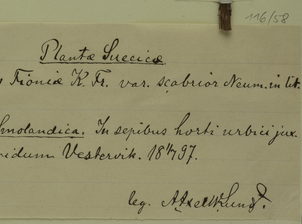 116/58
Plantæ Suecicæ
Fioniæ K. Fr. var. scabrior Neum. in lit.
Smolandica. In sepibus horti urbici jux.
oppidum Vestervik. 18 97.
leg. Axel W. Lund.